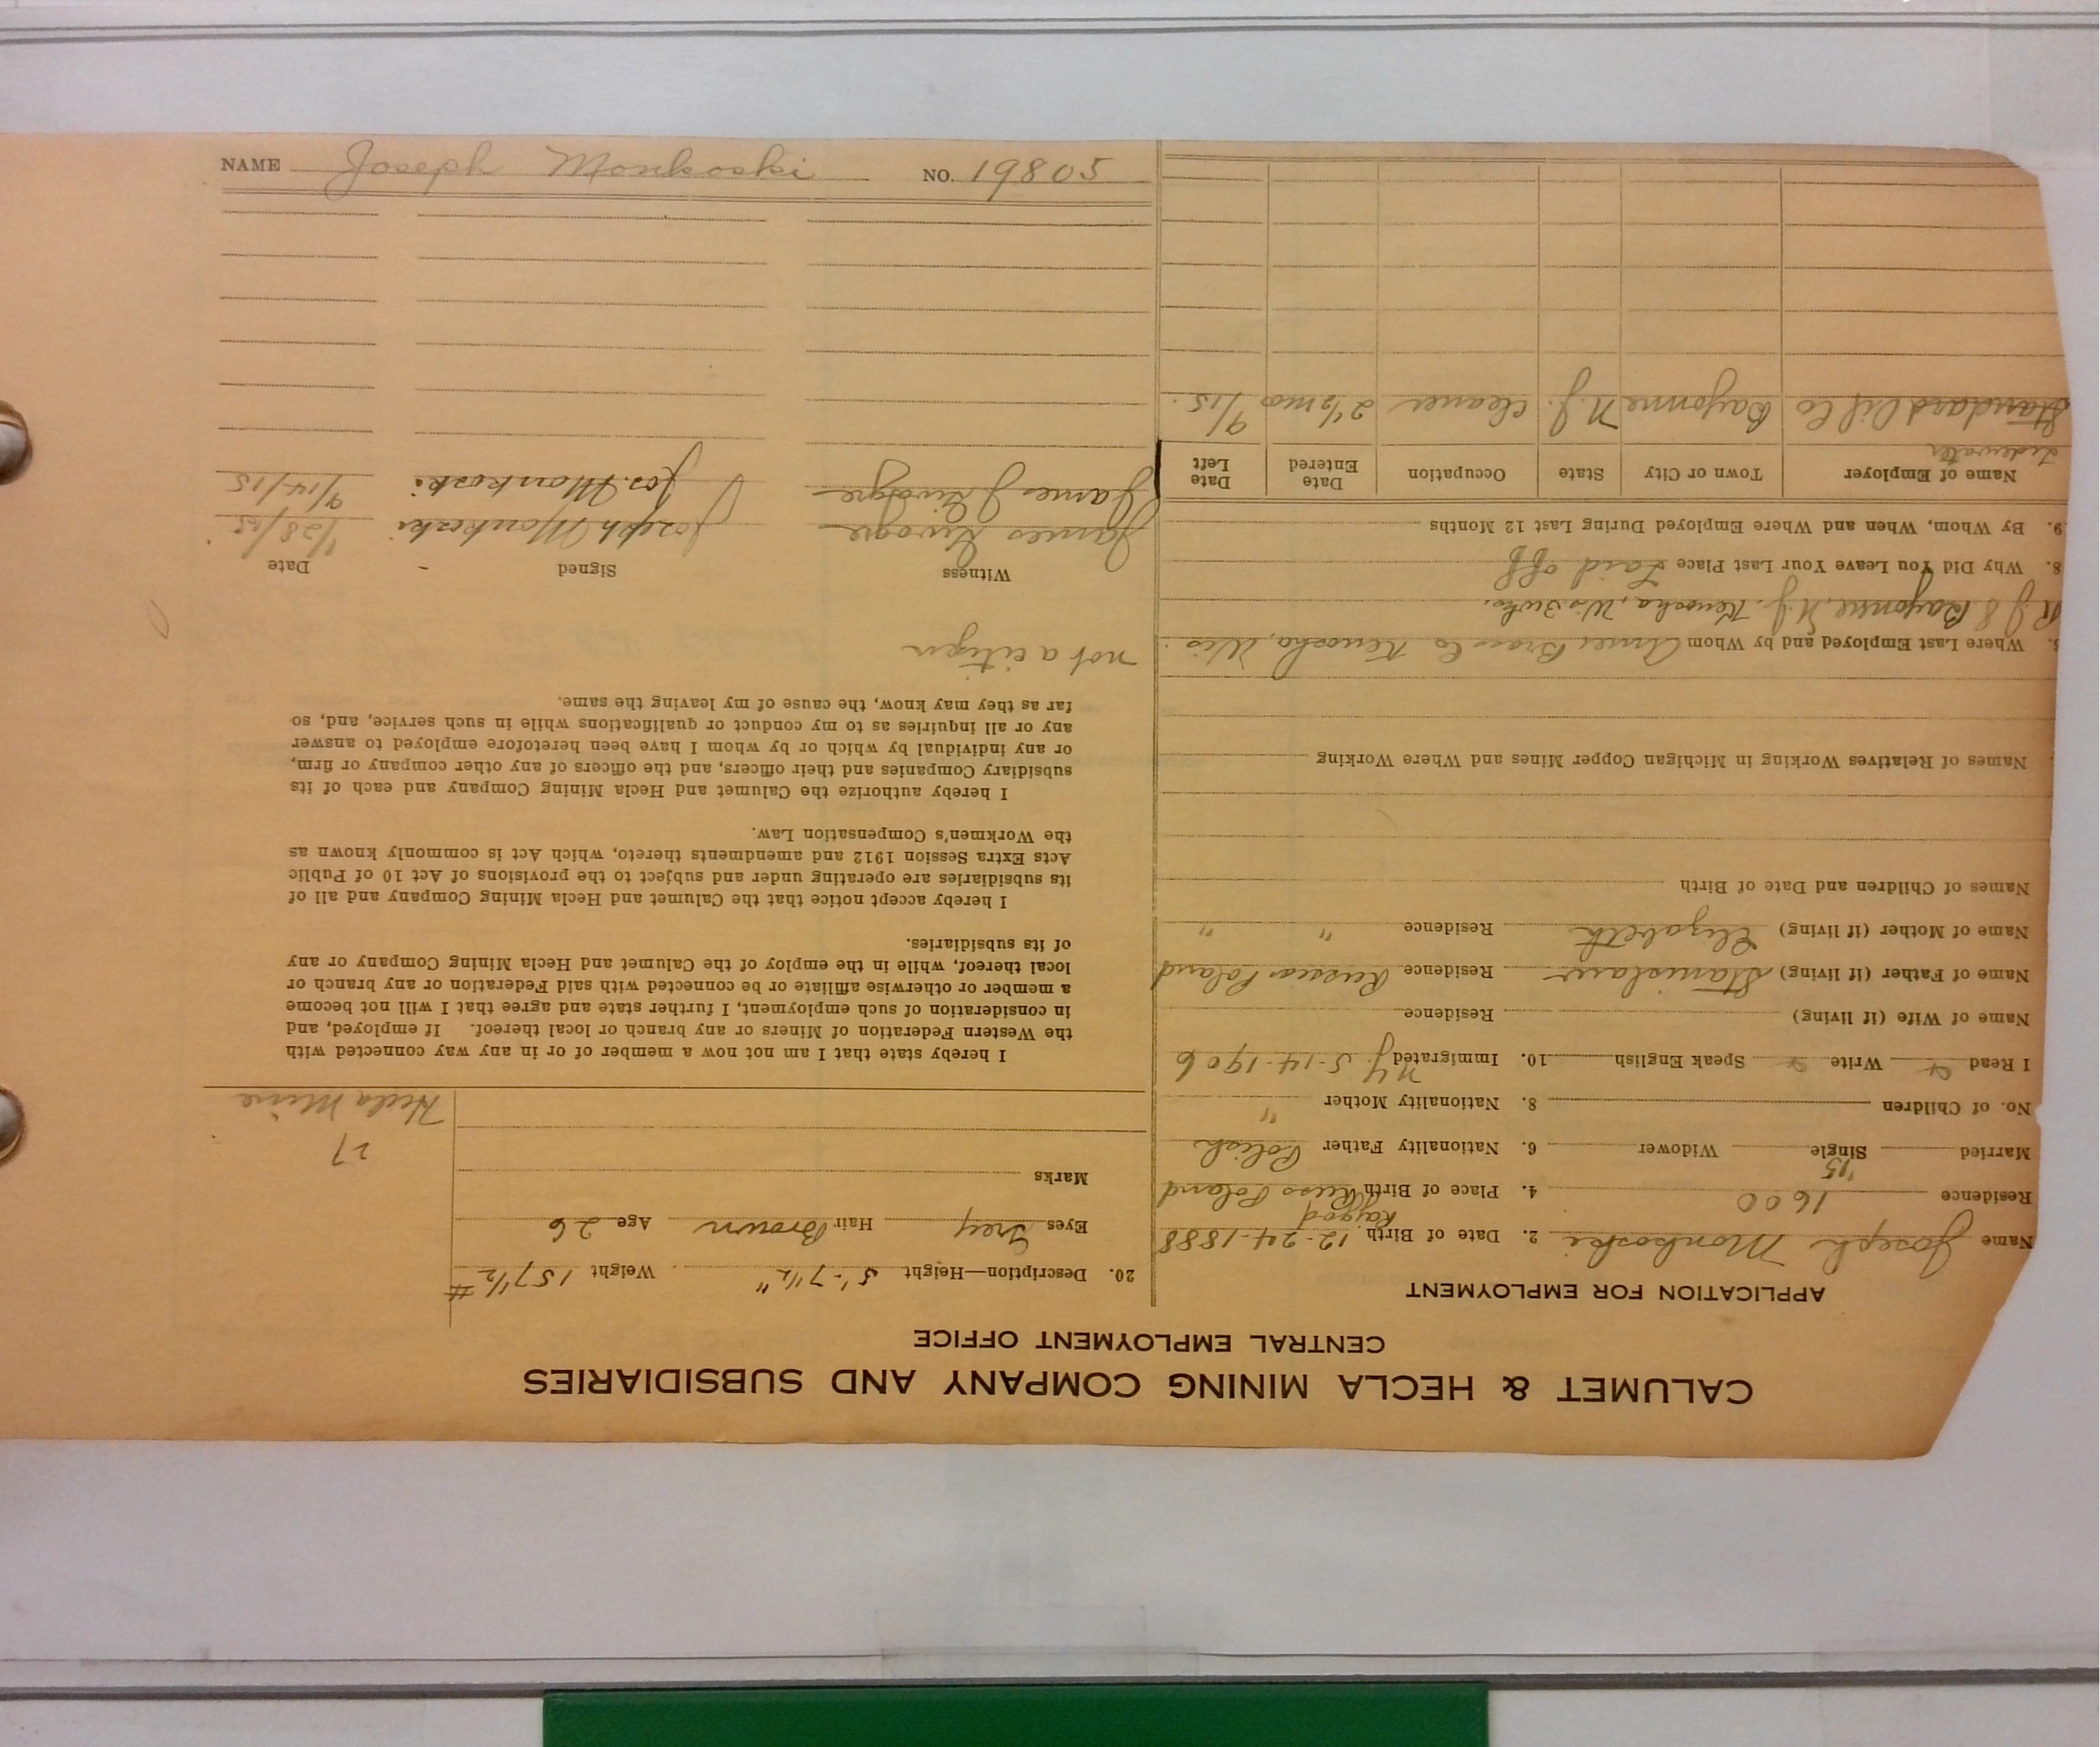 CALUMET & HECLA MINING COMPANY AND SUBSIDIARIES
CENTRAL EMPLOYMENT OFFICE
APPLICATION FOR EMPLOYMENT
Name Joseph Monkoski 2. Date of Birth 12-24-1888
Residence 1600 '15 4. Place of Birth Russ Poland
Married Single Widower 6. Nationality Father Polish
No. of Children 8. Nationality Mother "
I Read Write Speak English 10. Immigrated N.Y. 5-14-1906
Name of Wife (if living) Residence
Name of Father (if living) Stanislaw Residence Russia Poland
Name of Mother (if living) Elizabeth Residence " "
Names of Children and Date of Birth
Names of Relatives Working in Michigan Copper Mines and Where Working
Where Last Employed and by Whom Amer Brass Co Kenosha, Wis.
Bayonne, N.J. Kenosha, Wis 3 wks.
8. Why Did You Leave Your Last Place Laid off
9. By Whom, When and Where Employed During Last 12 Months
Name of Employer Town or City State Occupation Date Entered Date Left
Tidewater
Standard Oil Co Bayonne N.J. N.J. Cleaner 2 1/2 mos 9/15.
20. Description—Height 5'-7 1/2" Weight 157 1/2 #
Eyes Grey Hair Brown Age 26
Marks
27
Hecla Mine
I hereby state that I am not now a member of or in any way connected with
the Western Federation of Miners or any branch or local thereof. If employed, and
in consideration of such employment, I further state and agree that I will not become
a member or otherwise affiliate or be connected with said Federation or any branch or
local thereof, while in the employ of the Calumet and Hecla Mining Company or any
of its subsidiaries.
I hereby accept notice that the Calumet and Hecla Mining Company and all of
its subsidiaries are operating under and subject to the provisions of Act 10 of Public
Acts Extra Session 1912 and amendments thereto, which Act is commonly known as
the Workmen's Compensation Law.
I hereby authorize the Calumet and Hecla Mining Company and each of its
subsidiary Companies and their officers, and the officers of any other company or firm,
or any individual by which or by whom I have been heretofore employed to answer
any or all inquiries as to my conduct or qualifications while in such service, and, so
far as they may know, the cause of my leaving the same.
not a citizen
Witness Signed Date
James Joseph Monkoski
James J Jos. Monkoski 9/14/15
NAME Joseph Monkoski NO. 19805